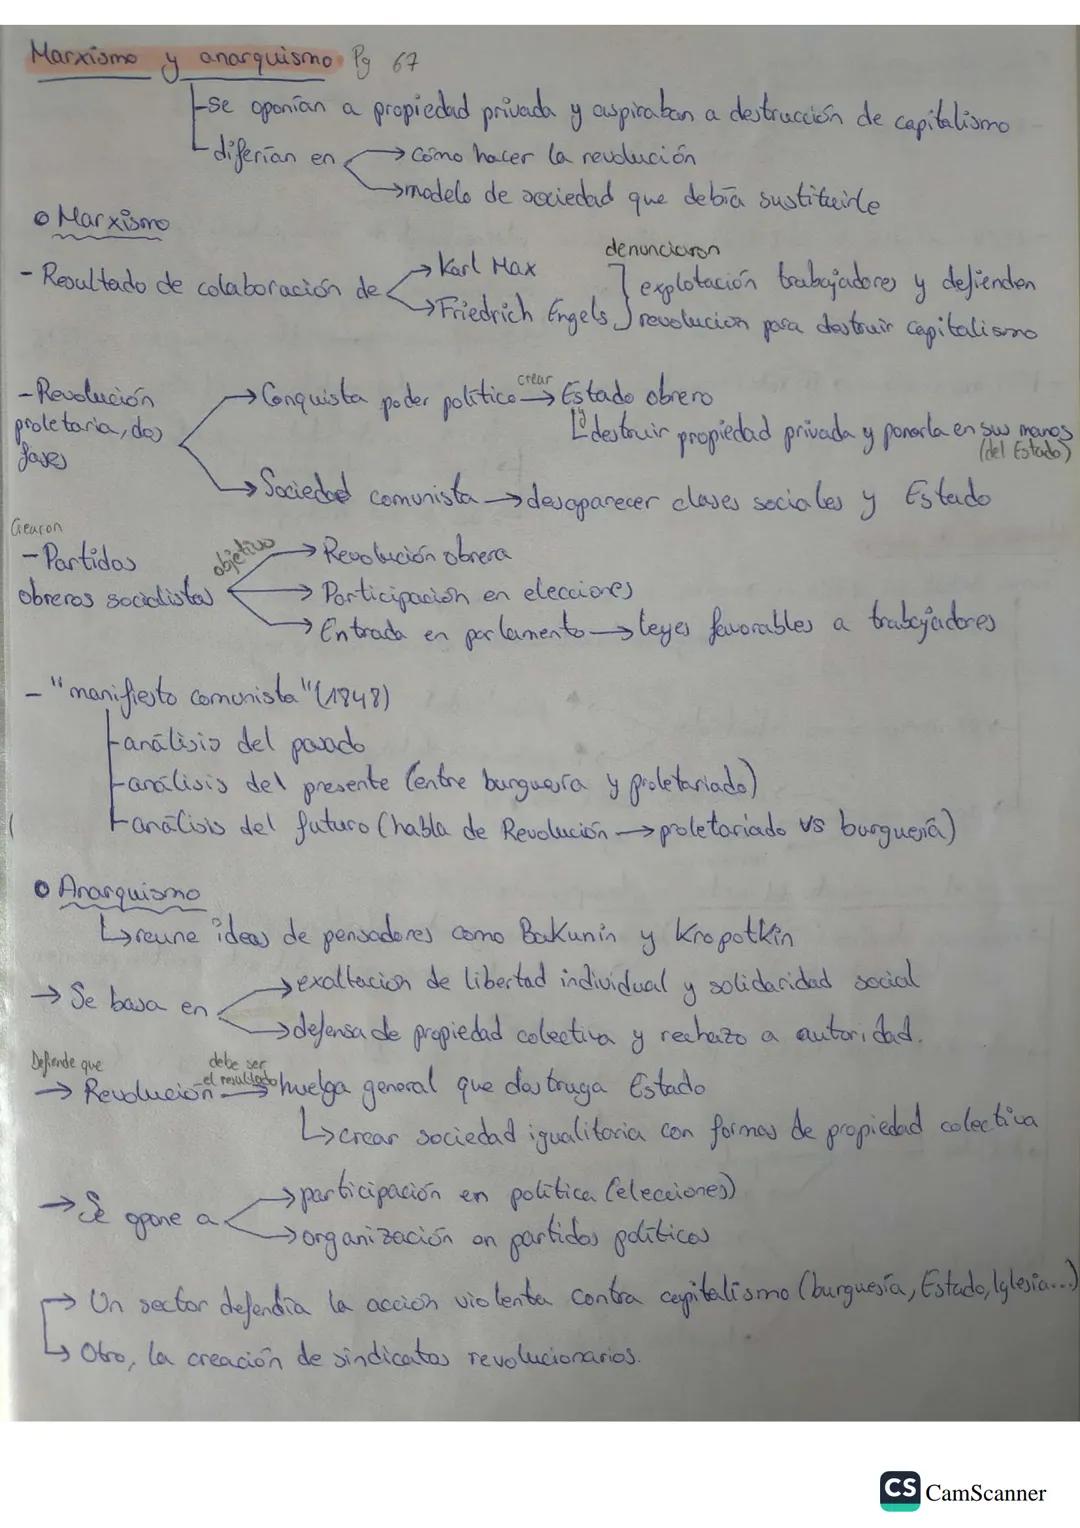 Marxismo y anarquismo Pg 67
se oponían a propiedad privada y aspiraban a destrucción de capitalismo
diferían en → cómo hacer la revolución
→ modelo de sociedad que debía sustituirle
Marxismo
denunciaron
- Resultado de colaboración de → Karl Max explotación trabajadores y defienden
→ Friedrich Engels revolucion para destruir capitalismo
- Revolución → Conquista poder político crear → Estado obrero
proletaria, dos y destruir propiedad privada y ponerla en sus manos
fases (del Estado)
→ Sociedad comunista → desaparecer clases sociales y Estado
Crearon
- Partidos objetivo → Revolución obrera
obreros socialistas → Participación en elecciones
→ Entrada en parlamento → leyes favorables a trabajadores
- "manifiesto comunista" (1848)
análisis del pasado
análisis del presente (entre burguesía y proletariado)
análisis del futuro (habla de Revolución → proletariado vs burguesía)
Anarquismo
↳ reune ideas de pensadores como Bakunin y Kropotkin
→ Se basa en → exaltacion de libertad individual y solidaridad social
→ defensa de propiedad colectiva y rechazo a autoridad.
Defiende que debe ser
→ Revolución el resultado → huelga general que destruya Estado
↳ crear sociedad igualitaria con formas de propiedad colectiva
→ Se opone a → participación en política (elecciones)
→ organización en partidos políticos
→ Un sector defendía la acción violenta contra capitalismo (burguesía, Estado, Iglesia...)
↳ Otro, la creación de sindicatos revolucionarios.
CS CamScanner